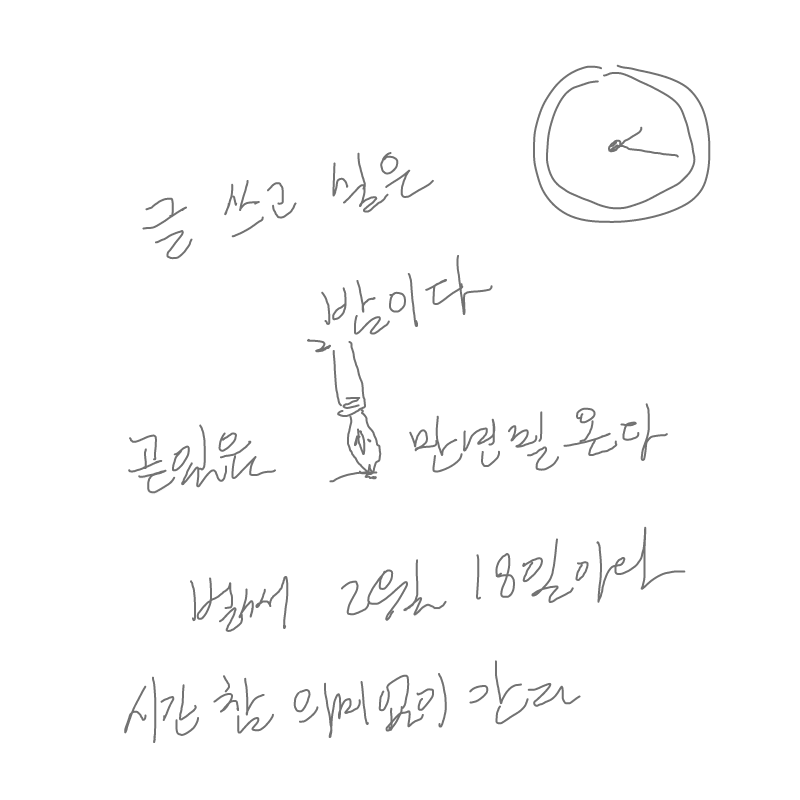 글 쓰고 싶은
밤이다
곧있음 만년필 온다
벌써 2월 18일이라
시간 참 의미없이 간다